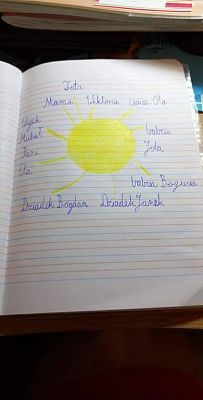 Tata
Mama Wiktoria ciocia Ola
Wujek
Michał
babcia
Jola
babcia Bogusia
Dziadek Bogdan Dziadek Janek